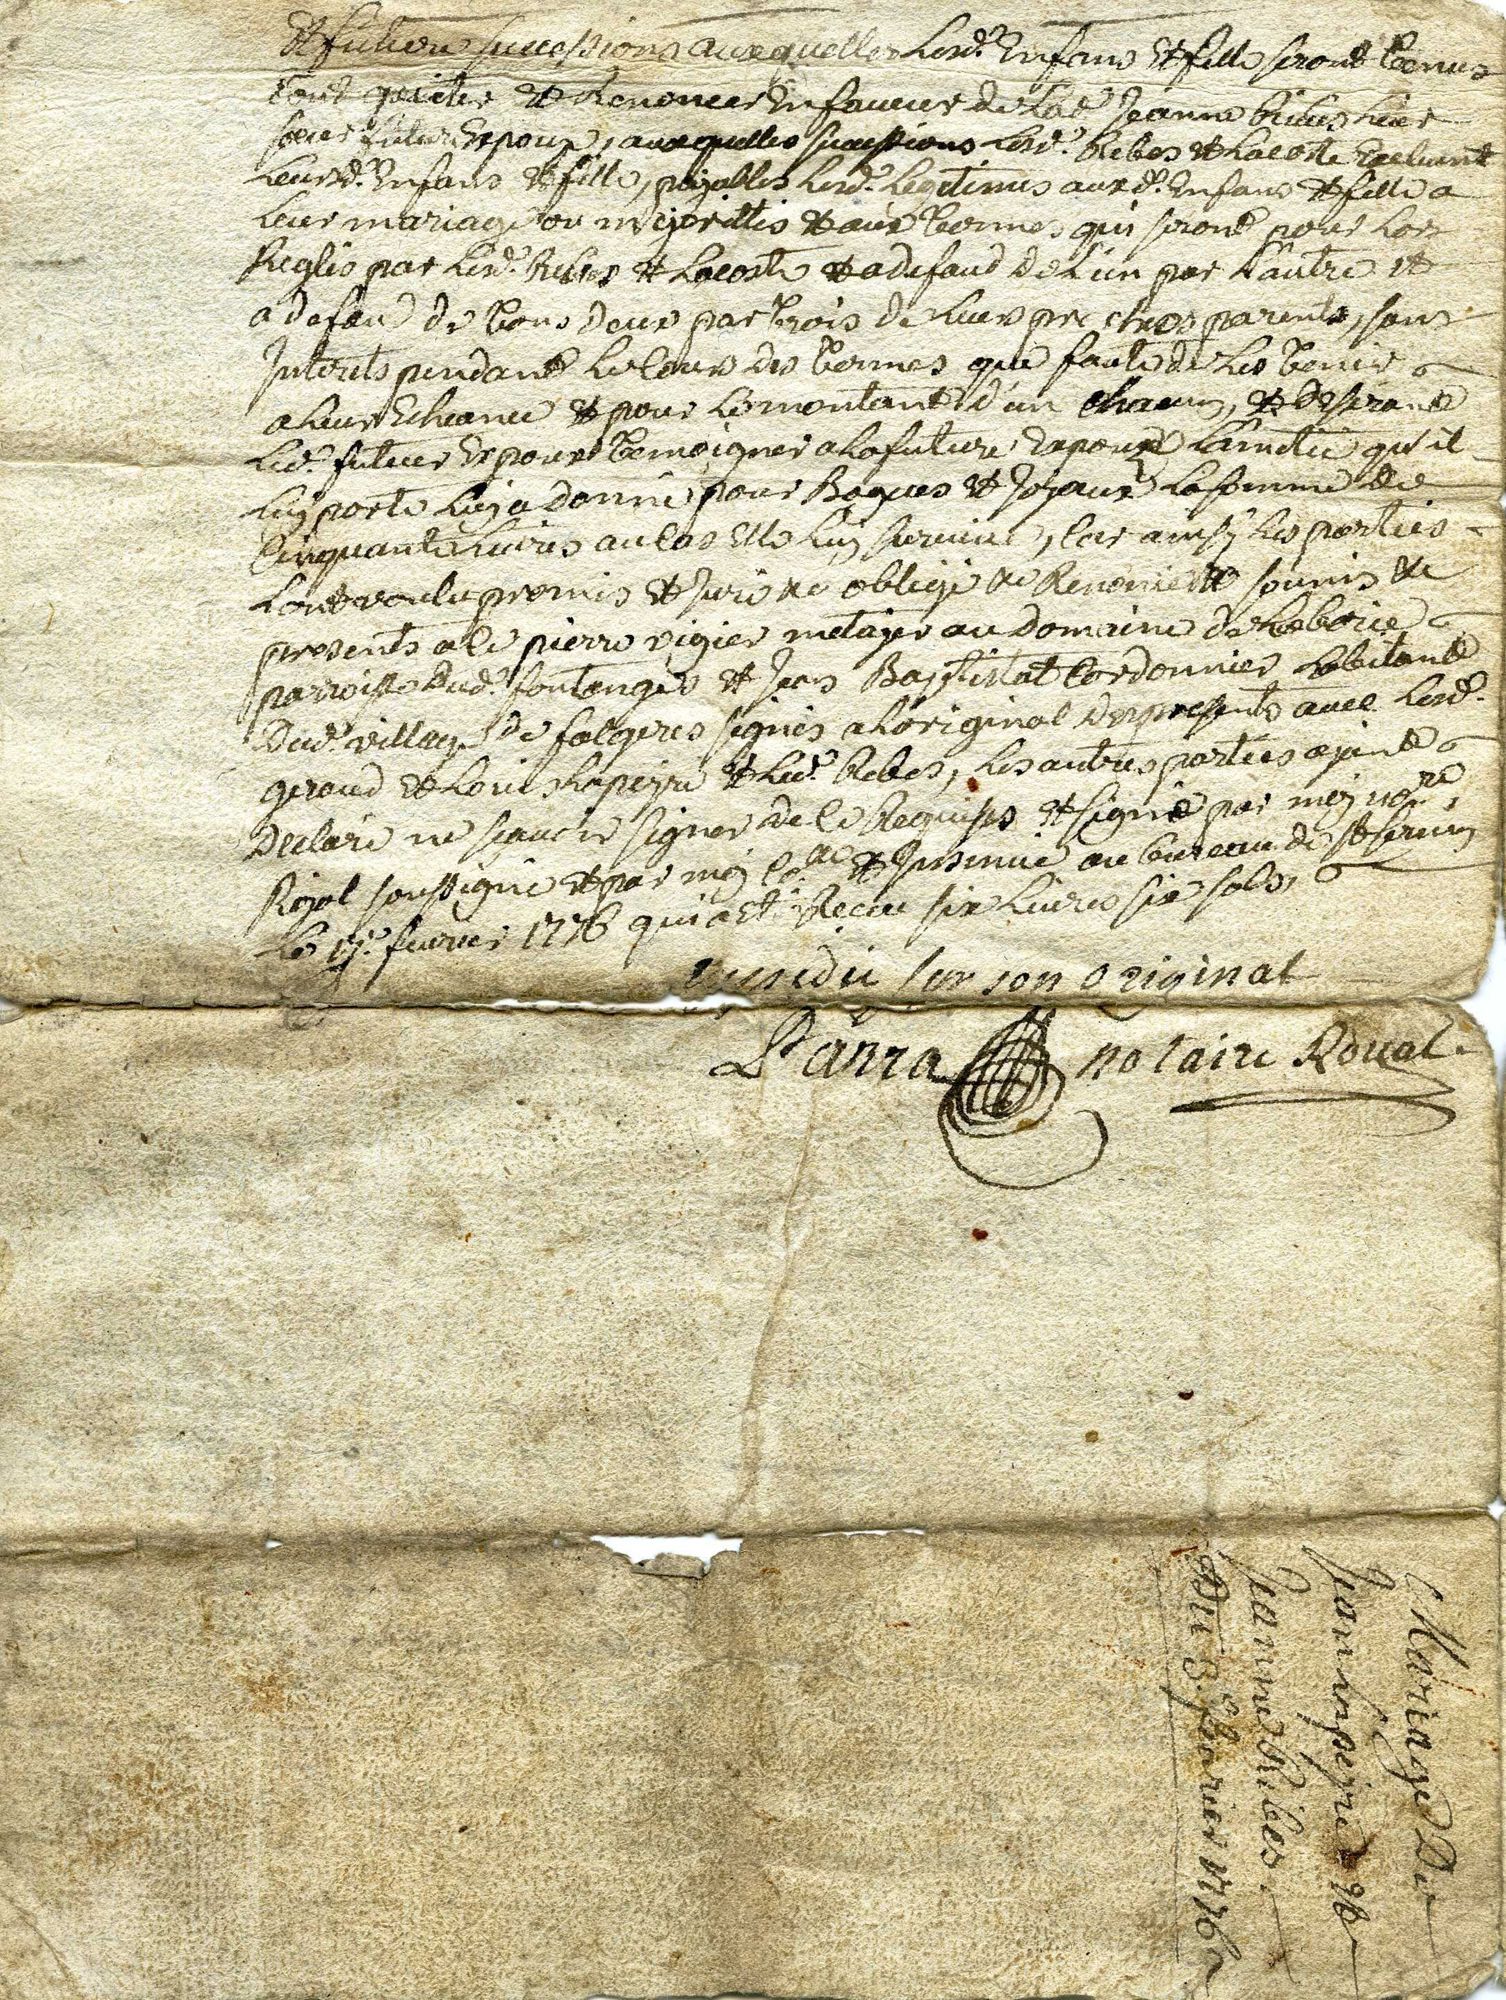 et future successions auxquelles lesd. Enfans et fille seront tenus
tout quitter et Renoncer En faveur de lad. Jeanne Ribes leur
soeur future Epouse, auxquelles successions lesd. Ribes et Lacoste Excluent
leursd. Enfans et fille, payables lesd. legitimes auxd. Enfans et fille a
leur mariage ou majorittés et aux termes qui seront pour lors
Reglés par lesd. Ribes et Lacoste et a defaud de l'un par l'autre et
a defau de tous deux par trois de leurs prochos parents, sans
Interets pendant le cours des termes que faute de les tenir
a leur Echeance et pour le montant d'un chacun, et desirant
led. futeur Epoux temoigner a la future Epouze l'amitié qu'il
luy porte luy a donné pour Bagues et Joyaux la somme de
Cinquante livres au cas elle luy survive, Car ainsy les parties
l'ont voulu promis et Juré &c obligé &c Renoncé &c soumis &c
presents a ce pierre vigier metayer au domaine de Laborie
parroisse dud. fontanges et Jean Baptistat Cordonnier habitant
dud. village de falgeres signés a l'original des presents avec lesd.
geraud et Louis Lapeyre et led. Ribes, les autres parties ayant
declaré ne scavoir signer de ce Requises et signé par moy no.re
Royal soussigné et par moy c.lle et Insinué au bureau de St sernin
le 17.e fevrier 1776 qui a eté Receu six livres six sols,
Expedié sur son original
Parra notaire Royal
Mariage De
Jean Lapeyre et
Jeanne Ribes.
Du 3. fevrier 1776